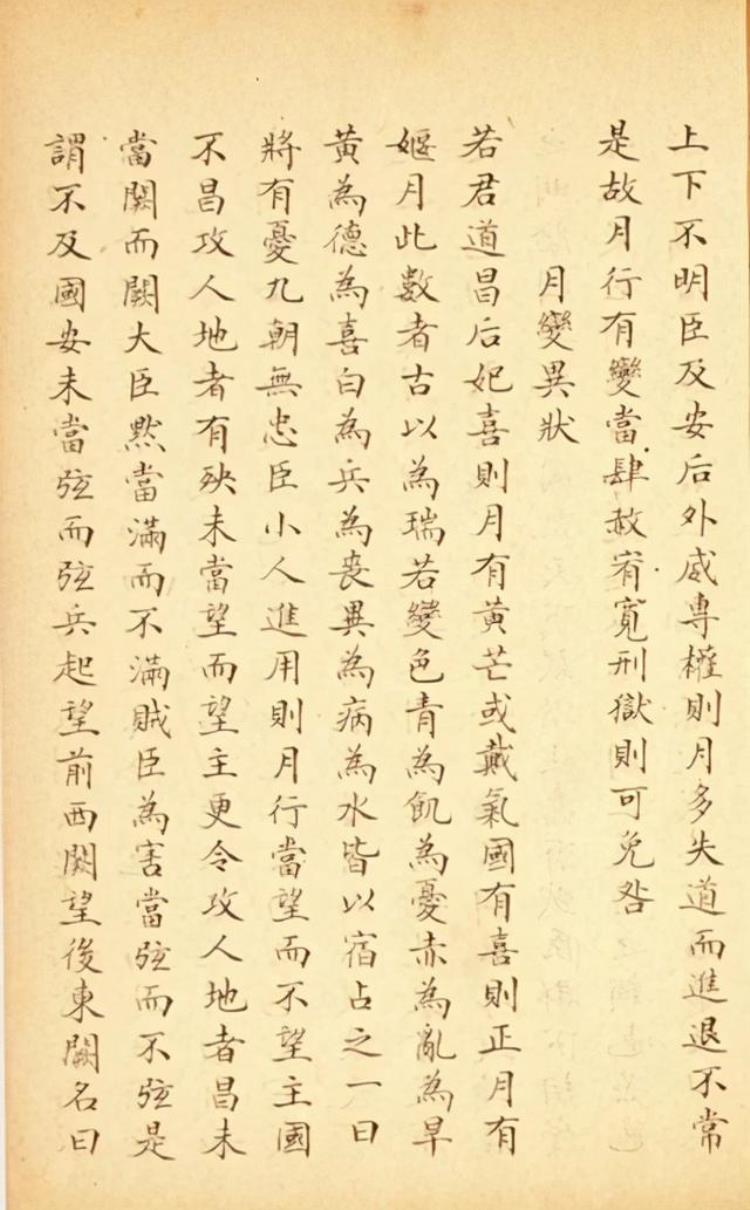 上下不明臣及安后外戚專權則月多失道而進退不常
是故月行有變當肆赦宥寬刑獄則可免咎
月變異狀
若君道昌后妃喜則月有黃芒或戴氣國有喜則正月有
娠月此數者古以為瑞若變色青為飢為憂赤為亂為旱
黃為德為喜白為兵為喪異為病為水皆以宿占之一曰
將有憂九朝無忠臣小人進用則月行當望而不望主國
不昌攻人地者有殃未當望而望主更令攻人地者昌未
當闕而闕大臣黙當滿而不滿賊臣為害當弦而不弦是
謂不及國安未當弦而弦兵起望前西闕望後東闕名曰